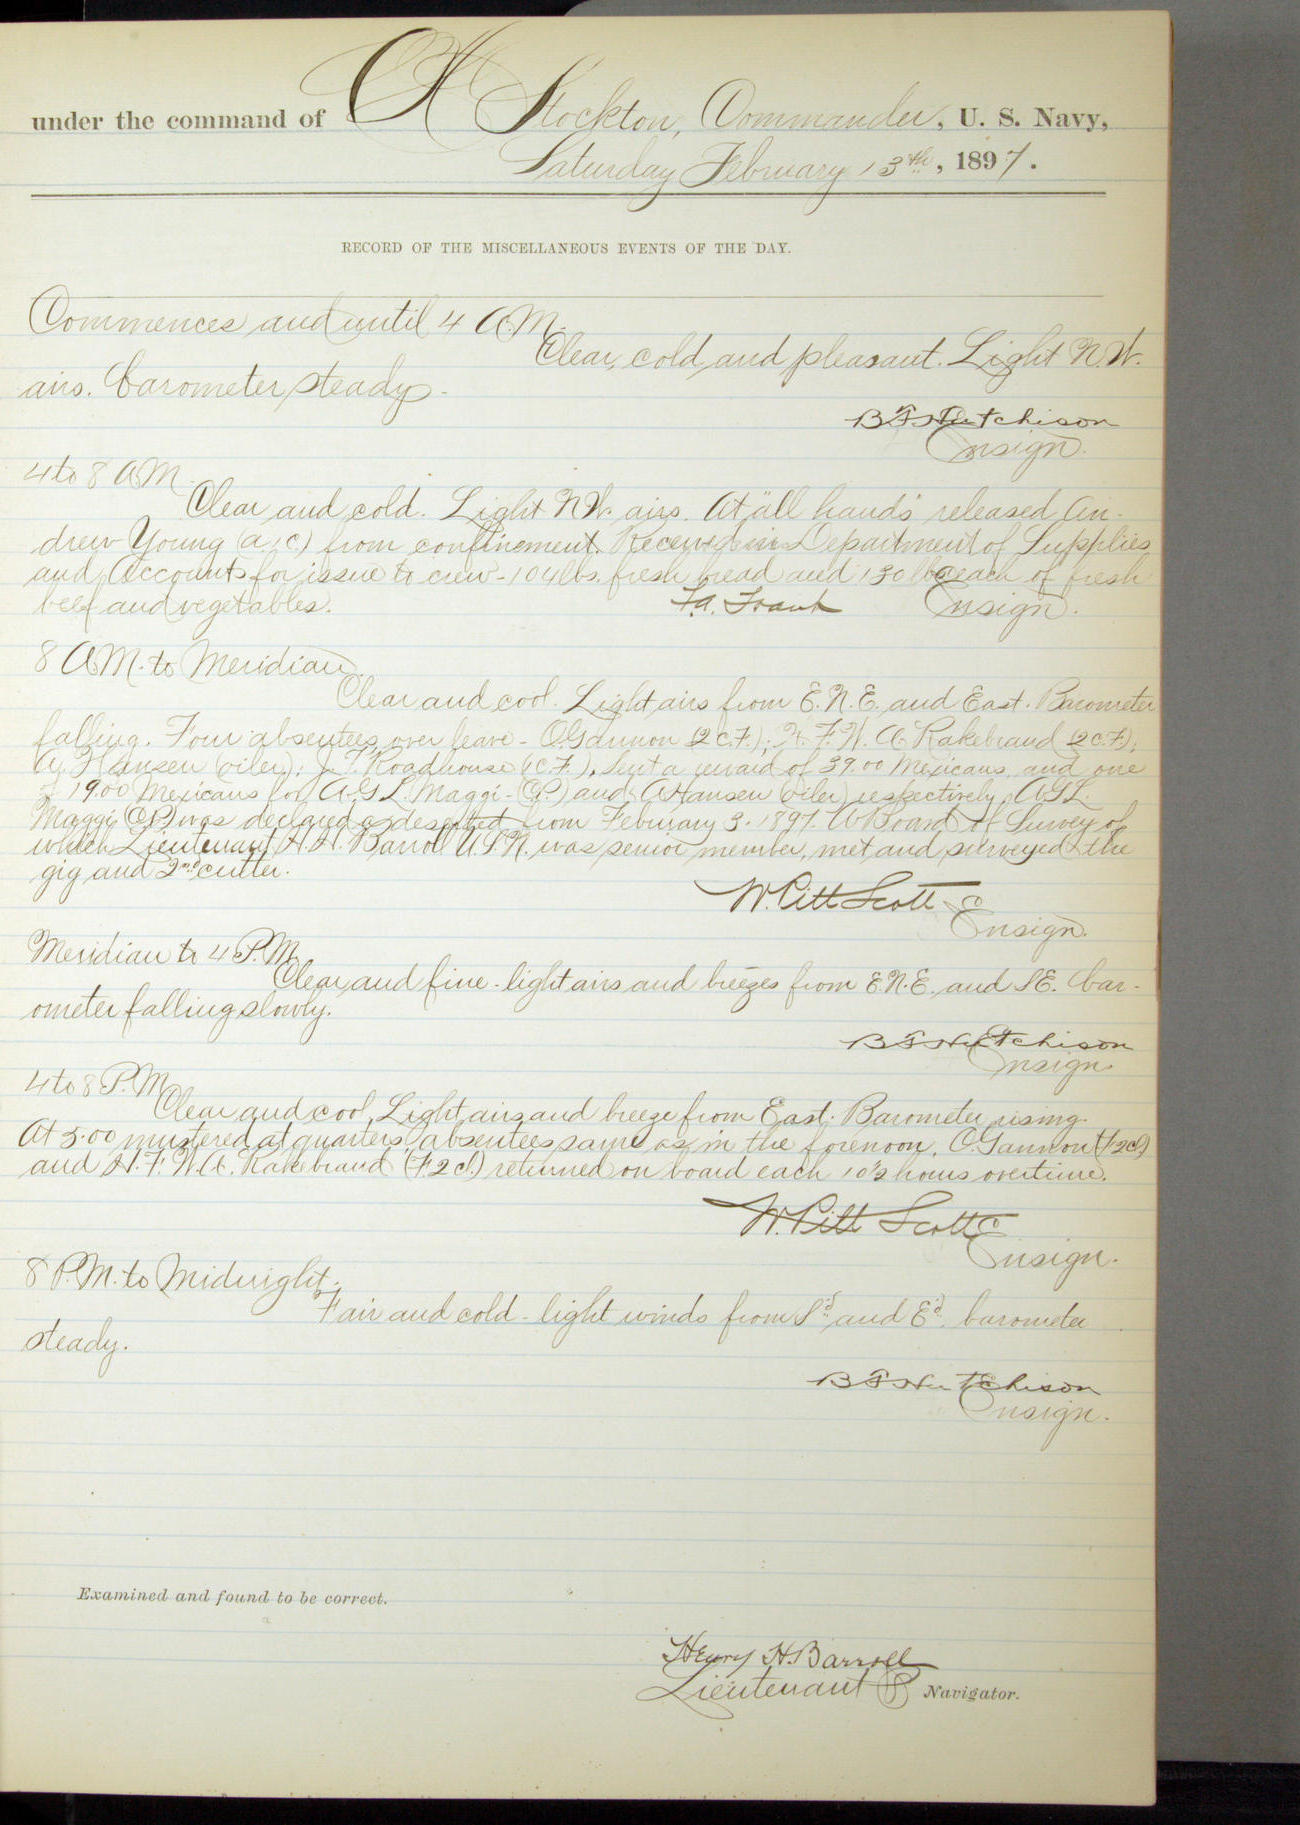 under the command of C H Stockton, Commander, U. S. Navy,
Saturday February 13th, 1897.
RECORD OF THE MISCELLANEOUS EVENTS OF THE DAY.
Commences and until 4 A.M.
Clear, cold and pleasant. Light N.W.
airs. barometer steady.
B F Hutchison
Ensign.
4 to 8 A.M.
Clear and cold. Light N.W. airs. At "all hands" released An-
drew Young (a.c.) from confinement. Received in Department of Supplies
and Accounts for issue to crew - 104 lbs. fresh bread and 130 lbs each of fresh
beef and vegetables.
F.A. Traut Ensign.
8 A.M. to Meridian
Clear and cool. Light airs from E.N.E. and East. Barometer
falling. Four absentees over leave - O. Gannon (2 c.F.); H. F. W. A. Rakebrand (2 c.F.);
A. Hansen (oiler); J. T. Roadhouse (1 C.F.). Sent a reward of 39.00 Mexicans, and one
of 19.00 Mexicans for A.G.L. Maggi - (P.) and A Hansen (oiler) respectively. A.G.L.
Maggi (P.) was declared a deserter from February 3. 1897. A Board of Survey of
which Lieutenant H. H. Barroll U.S.N. was senior member, met and surveyed the
gig and 2nd cutter.
W. Pitt Scott Ensign.
Meridian to 4 P.M.
Clear and fine - light airs and breezes from E.N.E. and S.E. bar-
ometer falling slowly.
B F Hutchison
Ensign.
4 to 8 P.M.
Clear and cool, Light airs and breeze from East. Barometer rising.
At 5.00 mustered at quarters, absentees same as in the forenoon. O. Gannon (F 2 cl)
and H. F. W. A. Rakebrand (F. 2 cl.) returned on board each 10½ hours overtime.
W. Pitt Scott
Ensign.
8 P.M. to Midnight.
Fair and cold - light winds from S'd and E'd. barometer
steady.
B F Hutchison
Ensign.
Examined and found to be correct.
Henry H. Barroll
Lieutenant & Navigator.